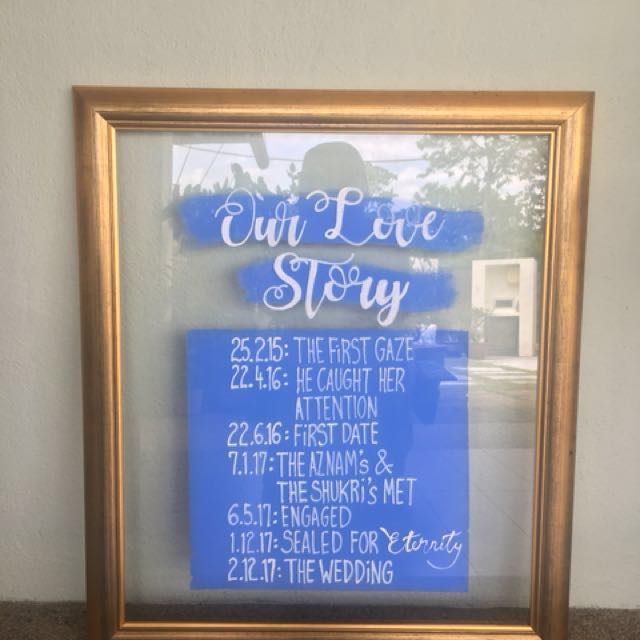 Our Love
Story
25.2.15: THE FIRST GAZE
22.4.16: HE CAUGHT HER
ATTENTION
22.6.16: FIRST DATE
7.1.17: THE AZNAM's &
THE SHUKRI's MET
6.5.17: ENGAGED
1.12.17: SEALED FOR Eternity
2.12.17: THE WEDDING